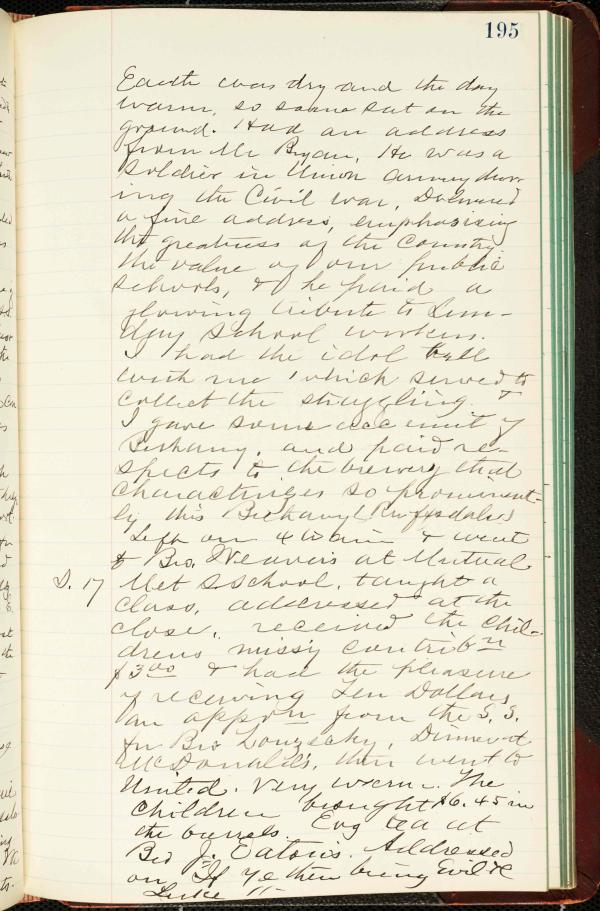 195
Earth was dry and the day
warm, so some sat on the
ground. Had an address
from Mr Bryan, He was a
soldier in Union army dur-
ing the Civil war, Delivered
a fine address, emphasizing
the greatness of the Country,
the value of our public
schools, & he paid a
glowing tribute to Sun-
day School workers.
I had the idol bell
with me which served to
collect the straggling. &
I gave some account of
Bethany, and paid re-
spects to the brewery that
characterizes so prominent-
ly this Bethany (Ruffsdale.)
Left on 4 train & went
to Bro. Weavers at Mutual
S. 17 Met S. School, taught a
class, addressed at the
close, received the chil-
drens missy contribn
$3.00 & had the pleasure
of receiving Ten Dollars
an apport from the S. S.
for Bro , Dinner at
McDonald's, then went to
United. Very warm. The
Children brought $6.45 in
the barrels. Evg tea at
Bro J. Eaton's. Addressed
on "If Ye then being Evil &c
Luke 11-